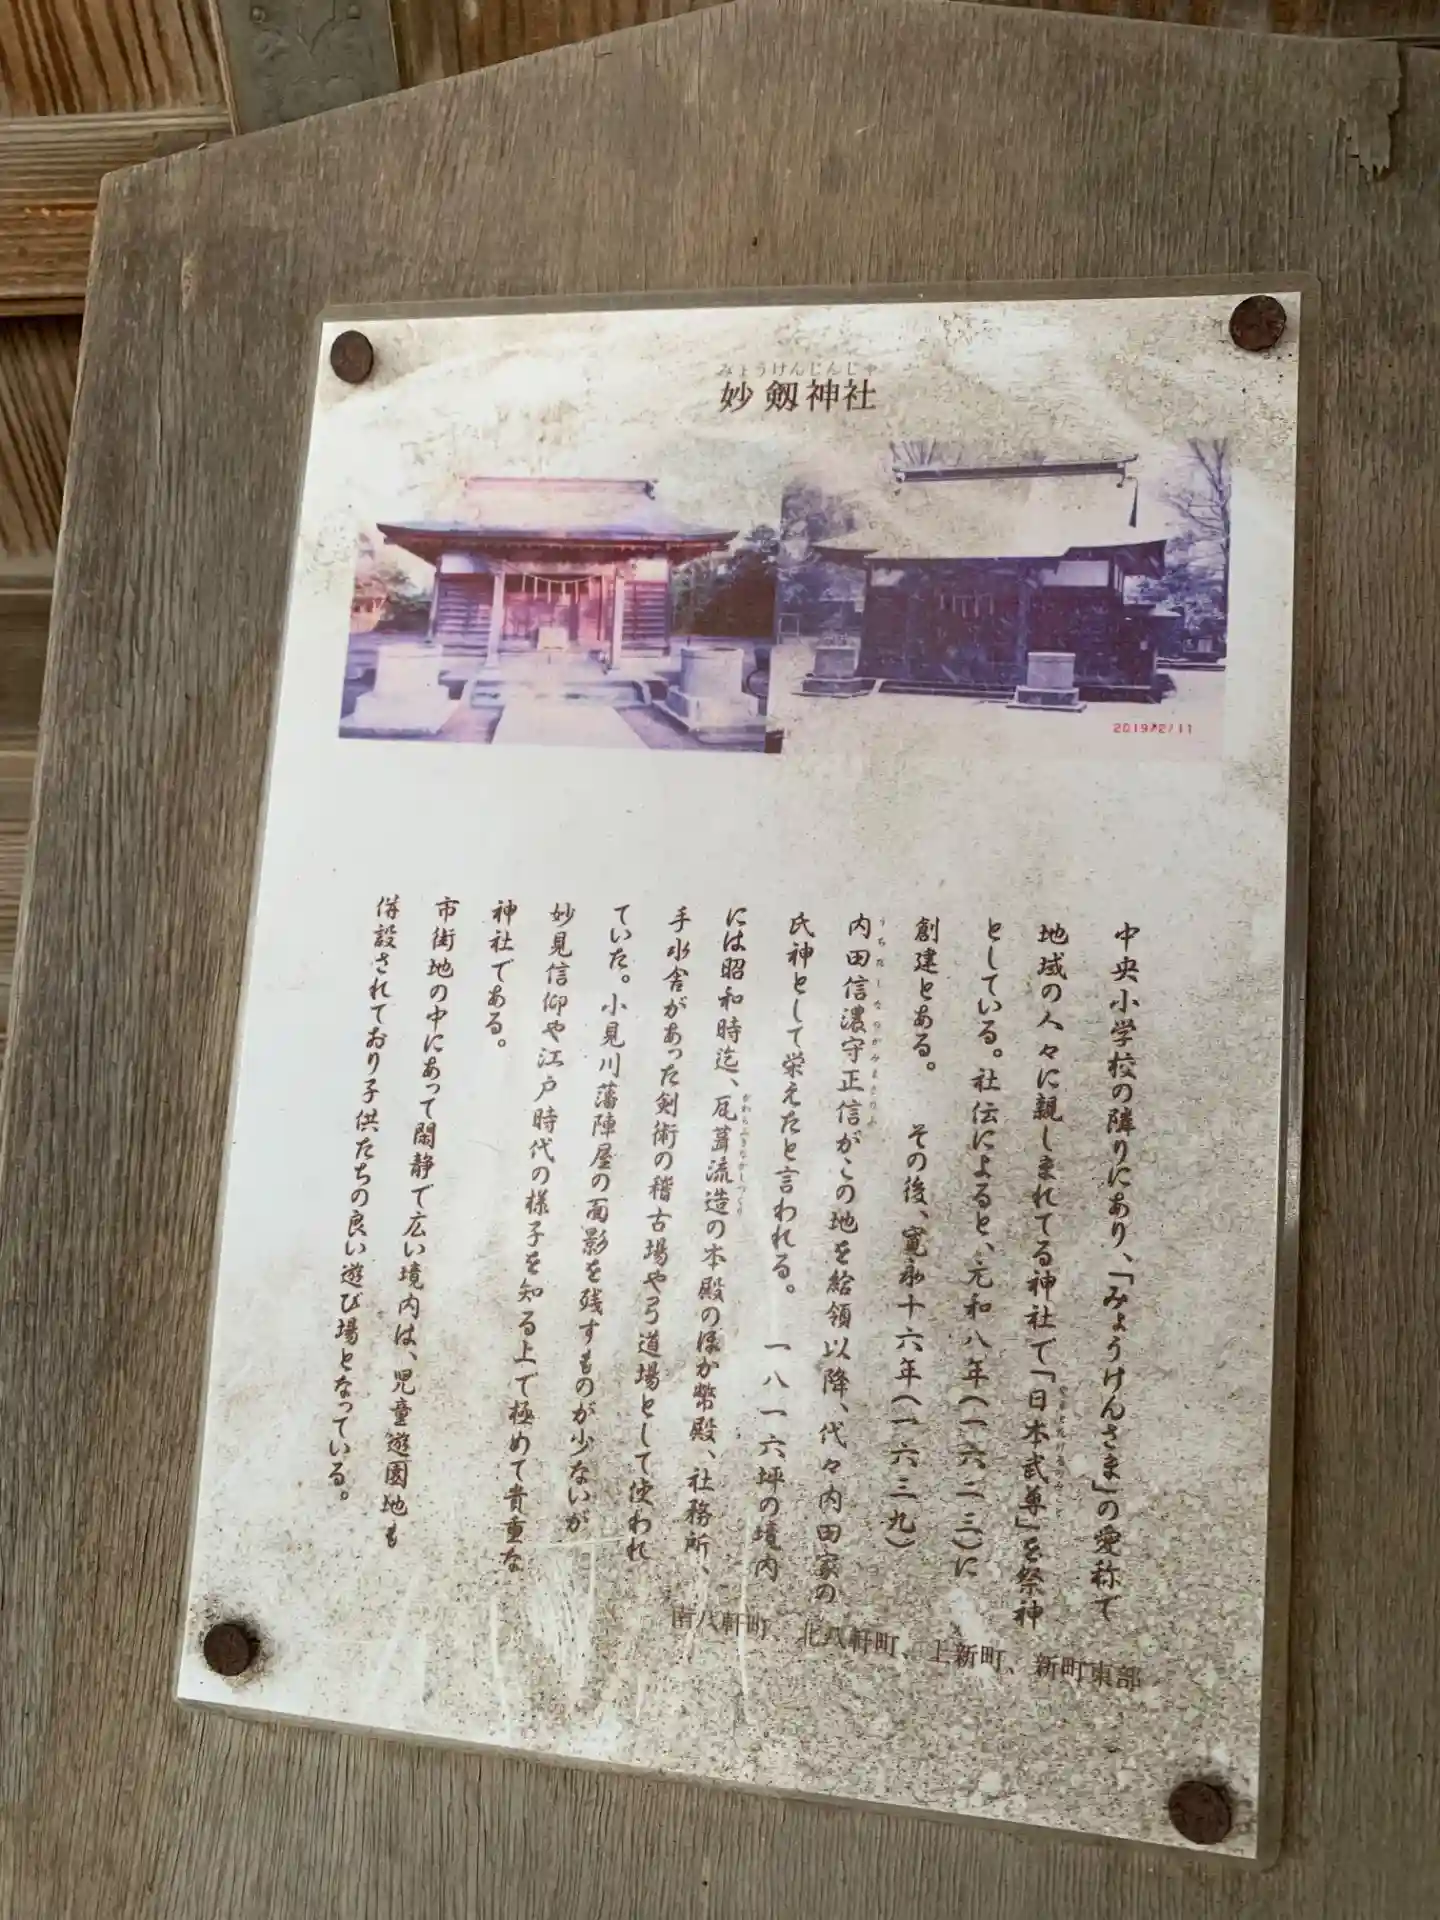 みょうけんじんじゃ
妙剱神社
2019/2/11
中央小学校の隣りにあり、「みょうけんさま」の愛称で
地域の人々に親しまれてる神社で「日本武尊」を祭神
やまとたけるのみこと
としている。社伝によると、元和八年(一六二三)に
創建とある。 その後、寛永十六年(一六三九)
内田信濃守正信がこの地を給領以降、代々内田家の
うちだしなのかみまさのぶ
氏神として栄えたと言われる。 一八一六坪の境内
には昭和時迄、瓦葺流造の本殿のほか幣殿、社務所、
かわらぶきながしつくり
手水舎があった剣術の稽古場や弓道場として使われ
ていた。小見川藩陣屋の面影を残すものが少ないが
妙見信仰や江戸時代の様子を知る上で極めて貴重な
神社である。
市街地の中にあって閑静で広い境内は、児童遊園地も
併設されており子供たちの良い遊び場となっている。
南八軒町、北八軒町、上新町、新町東部